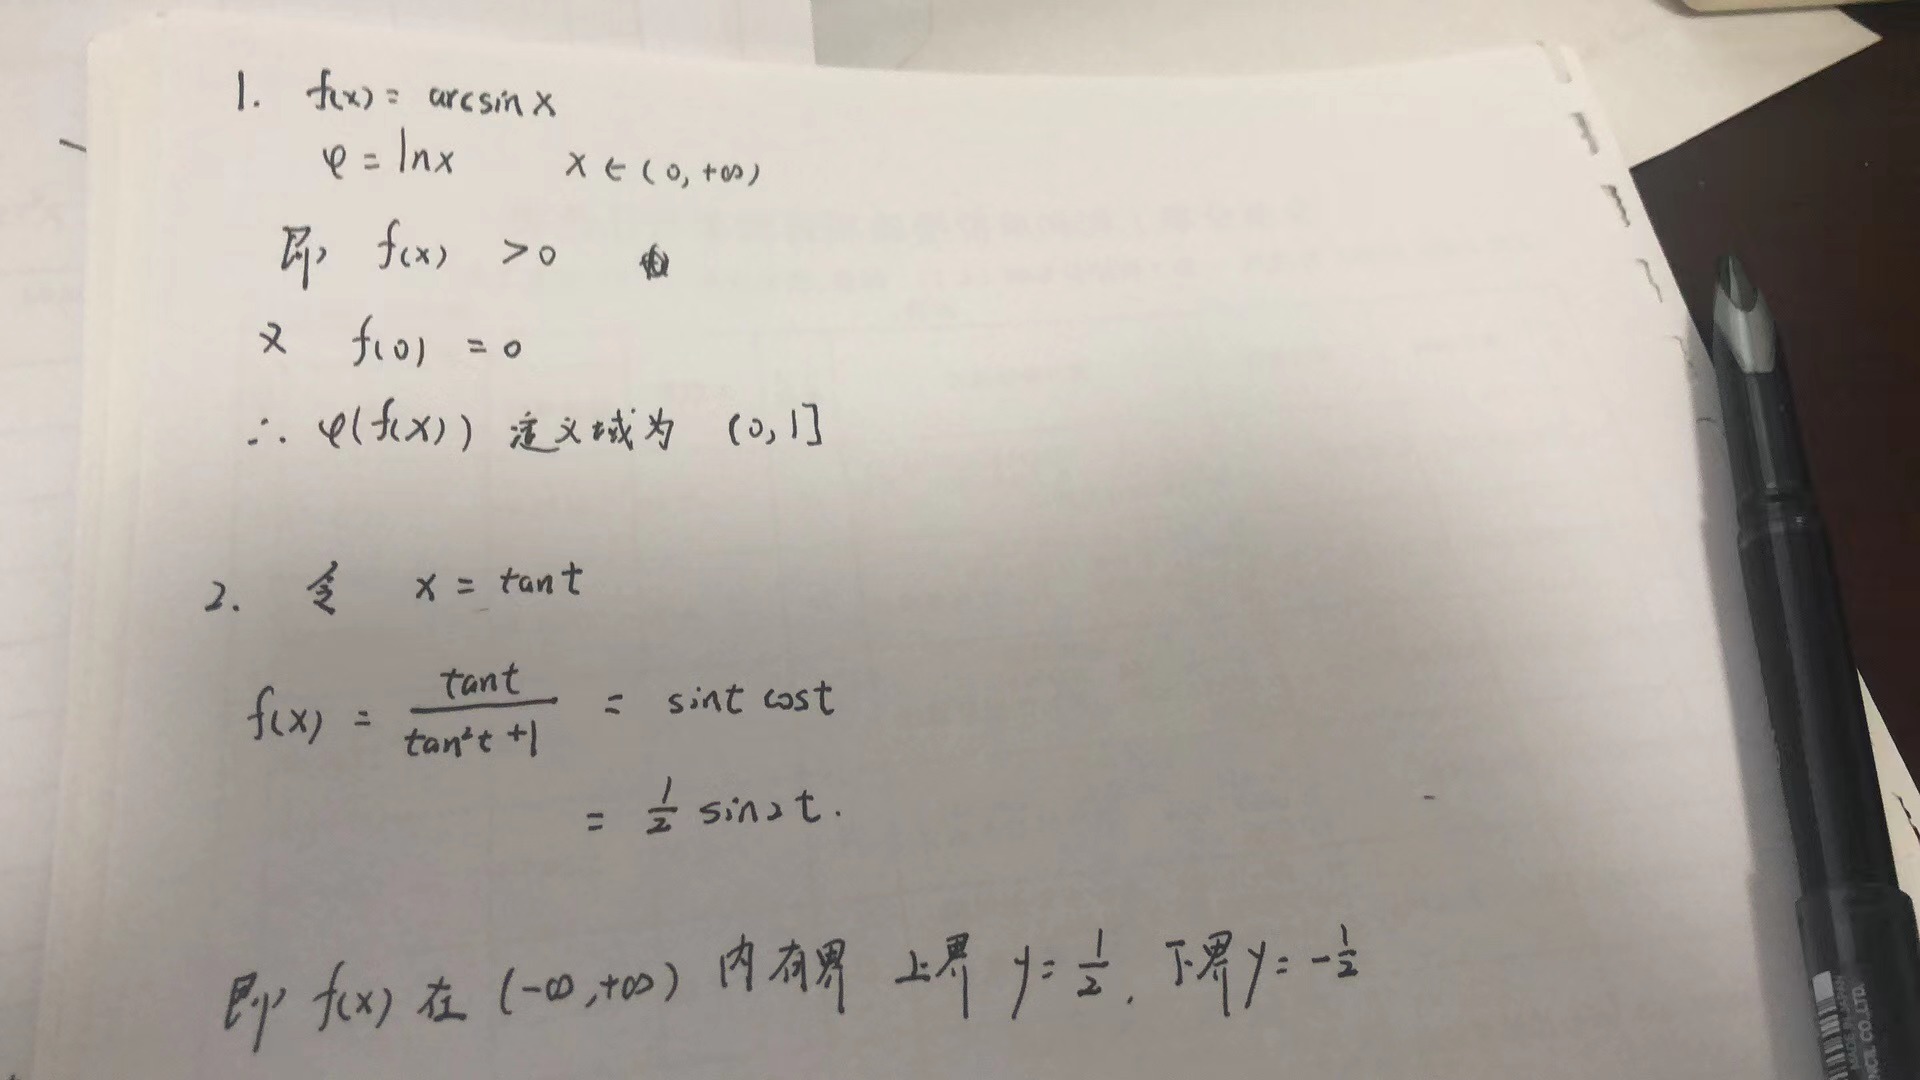 1. f(x) = arcsin x
φ = ln x x ∈ (0, +∞)
即 f(x) > 0
又 f(0) = 0
∴ φ(f(x)) 定义域为 (0, 1]
2. 令 x = tan t
f(x) = tan t / (tan²t + 1) = sin t cos t
= 1/2 sin 2t.
即 f(x) 在 (-∞, +∞) 内有界 上界 y = 1/2, 下界 y = -1/2
MADE IN JAPAN
NCIL CO., LTD.